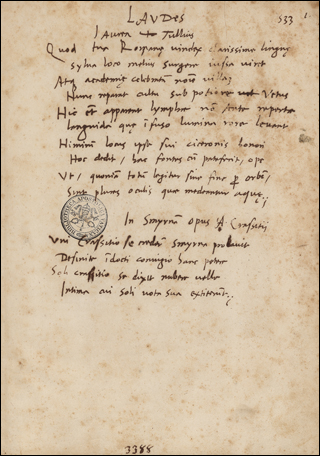 LAVDES
533
1.
Laurea Tullius
Quod tua Romanę vindex clarissime linguę
sylva loco melius surgere iussa viret
Atq academię celebratā noīe villā
Nunc reparat cultu sub potiore Vetus
Hic et apparent lymphę nō ante repertę
Languida que īfuso lumina rore levant
Nimirum locus ipse sui ciceronis honori
Hoc dedit, hac fontes cū patefecit, ope
Ut, quoniam totū legitur sine fine p orbē,
Sint plures oculis quę medeantur aquę
In Smyrnā opus Crassitii
Uni Crassitio se credere Smyrna probavit
Desinite īdocti coniugio hanc petere
Soli crassitio se dixit nubere velle
Intima cui soli nota sua extiterint
3388